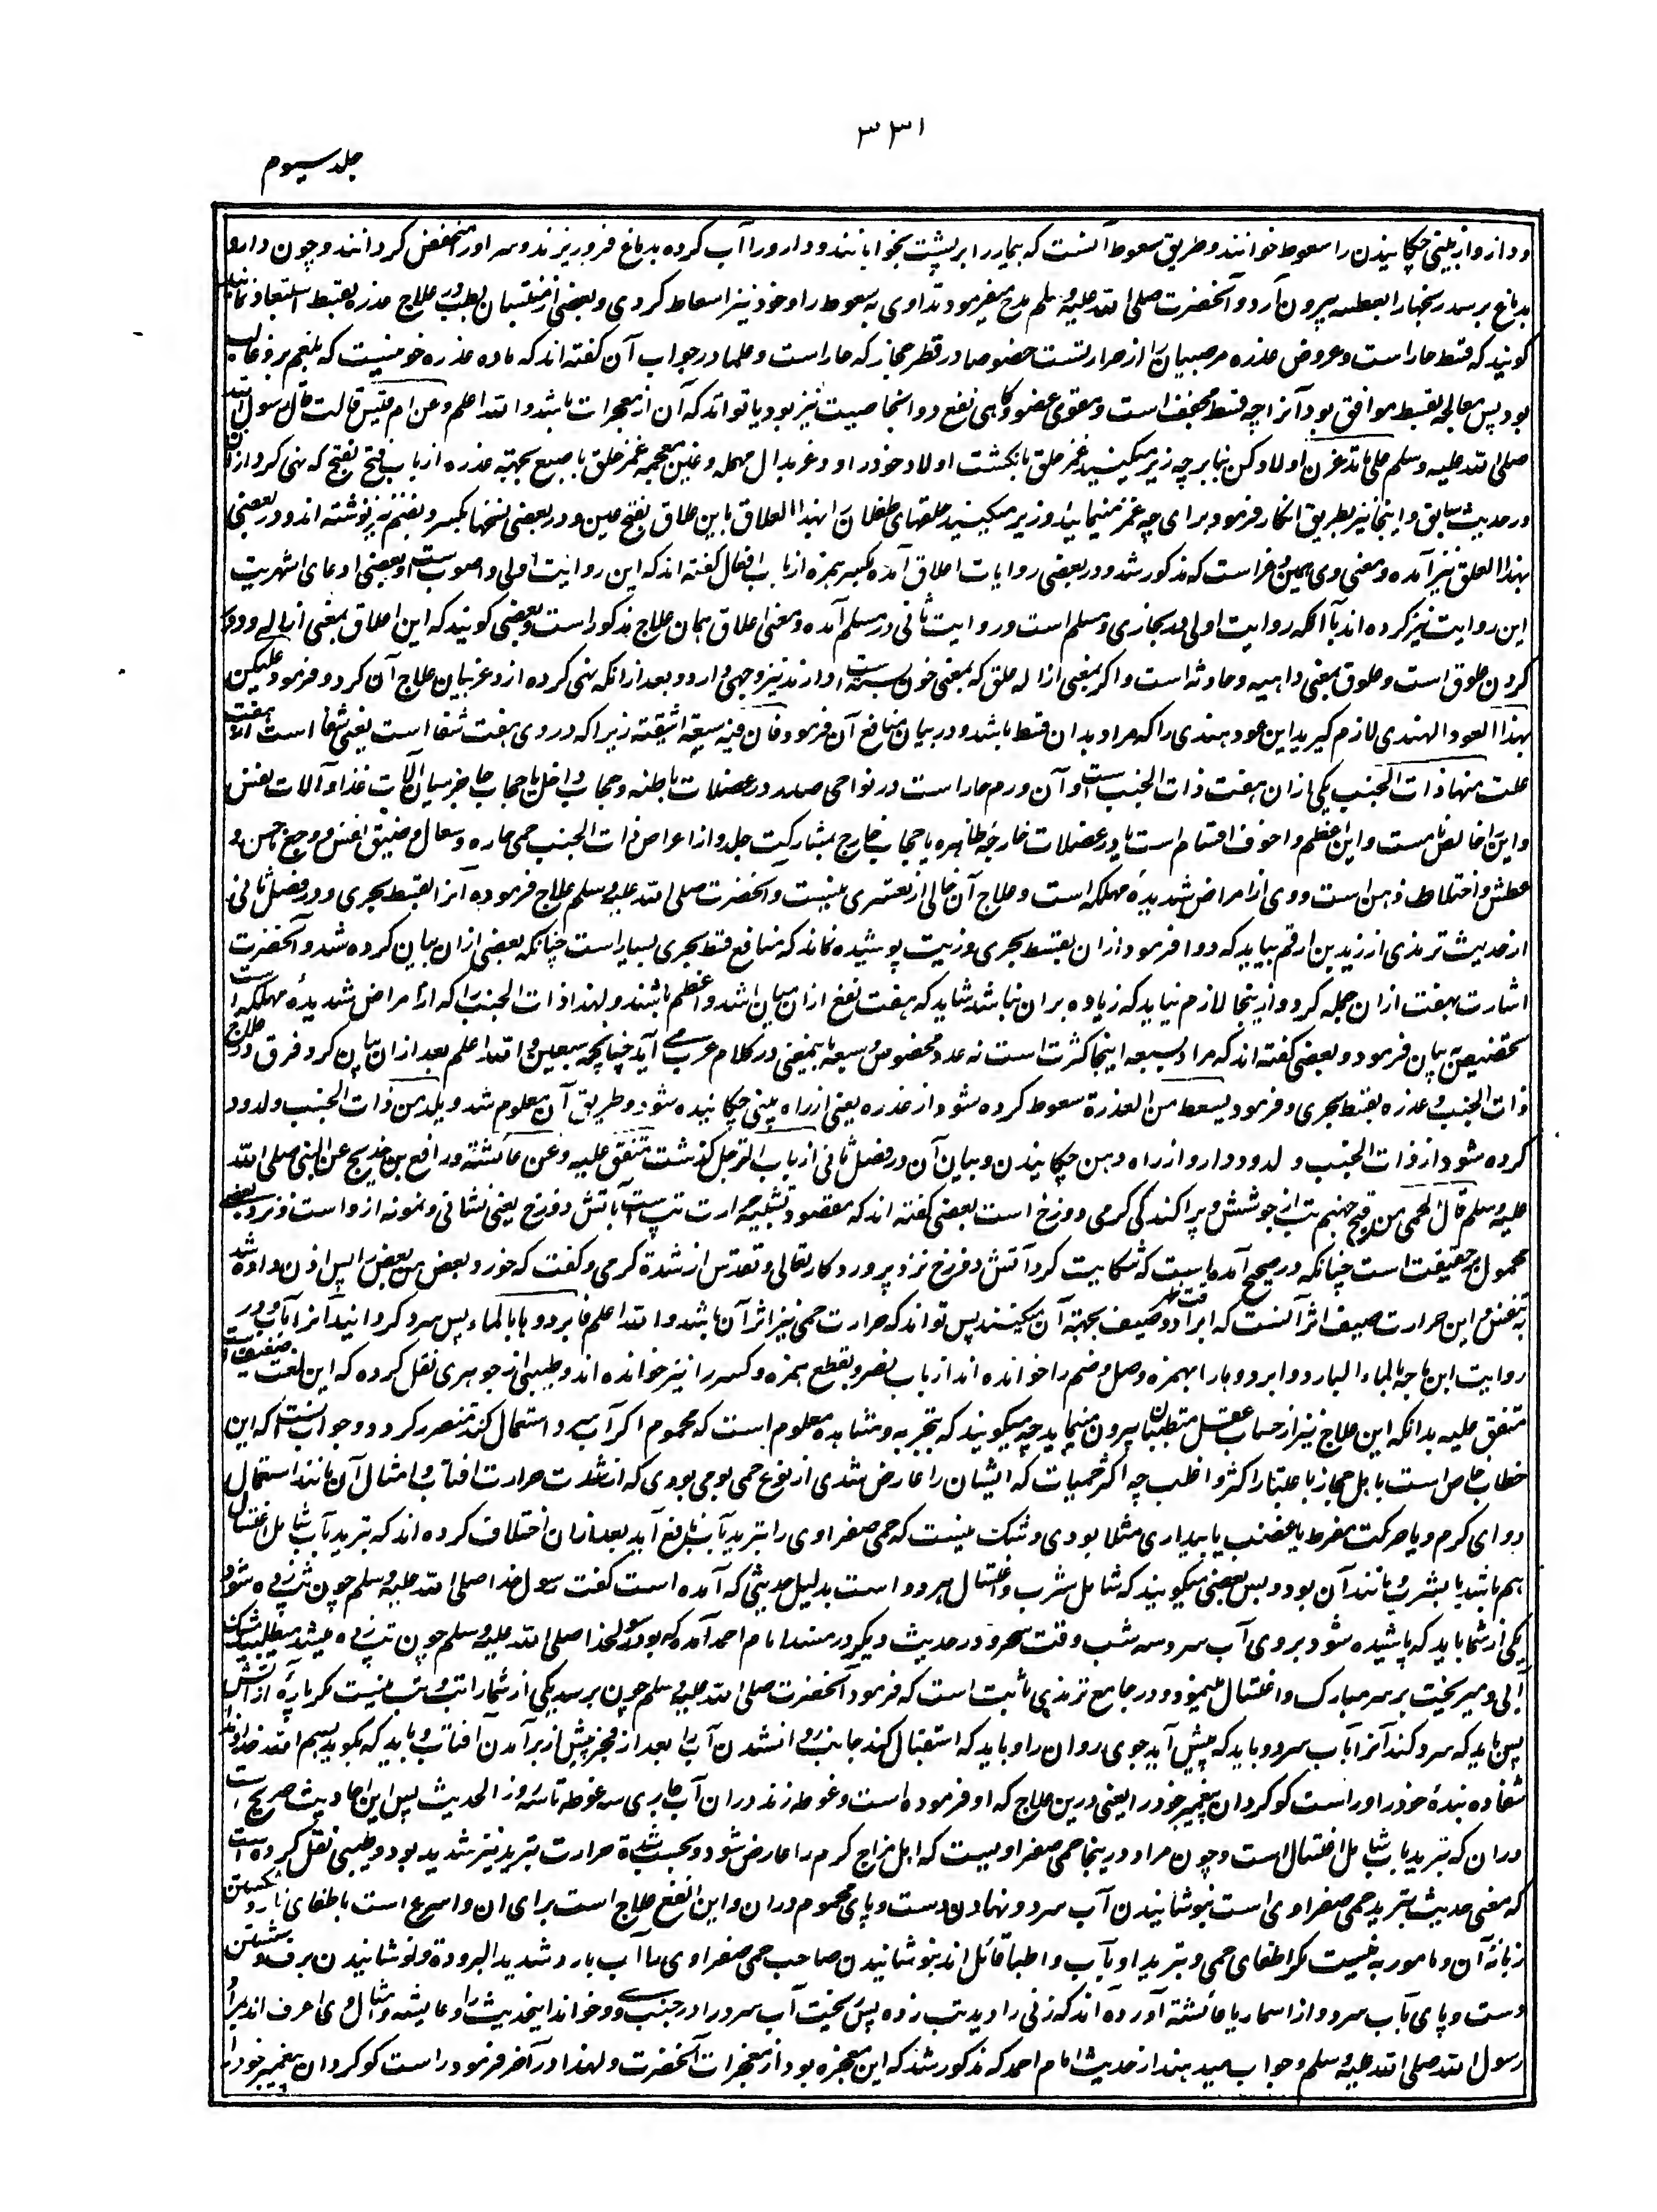 ۳۳۱
جلد سیوم
و دارو از بینی چکانیدن را سعوط خوانند و طریق سعوط آنست که بیمار را بر پشت بخوابانند و دارو را آب کرده بدماغ فرو ریزند و سر او را منخفض گردانند و چون دارو
بدماغ برسد رنجها را بعطسه بیرون آرد و آنحضرت صلی الله علیه وسلم مدح میفرمود تداوی به سعوط را و خود نیز اسعاط کردی و بعضی از منتسبان بطب در علاج عذره بقسط استبعاد نمایند
گویند که قسط حار است و عروض عذره مر صبیان را از حرارتست خصوصا در قطر حجاز که حار است و علما در جواب آن گفته اند که ماده عذره خونیست که بلغم بر و غالب
بود پس معالجه بقسط موافق بود آنرا چه قسط مجفف است و مقوی عضو و گاهی نفع دوا بخاصیت نیز بود یا تواند که آن از معجزات باشد والله اعلم وعن ام قیس قالت قال رسول الله
صلی الله علیه وسلم علی ما تدغرن اولادکن بنا بر چه زیر میکنید غمز حلق بانگشت اولاد خود را و دغر بدال مهمله و غین معجمه غمز حلق باصبع بجهته عذره از باب فتح یفتح که نهی کرد ازان
در حدیث سابق و اینجا نیز بطریق انکار فرمود برای چه غمز مینمایید و زیر میکنید حلقهای طفلان را بهذا العلاق باین علاق بفتح عین و در بعضی نسخها بکسر و بضم نیز نوشته اند و در بعضی
بهذا العلق نیز آمده و معنی وی همین دغر است که مذکور شد و در بعضی روایات اعلاق آمده بکسر همزه از باب افعال گفته اند که این روایت اولی و اصوب است و بعضی ادعای اشهریت
این روایت نیز کرده اند با آنکه روایت اولی در بخاری و مسلم است و روایت ثانی در مسلم آمده و معنی اعلاق همان علاج مذکور است و بعضی گویند که این اعلاق بمعنی ازاله و دور
کردن علوق است و علوق بمعنی داهیه و حادثه است و اگر بمعنی ازاله علق که بمعنی خون بسته است دارند نیز وجهی دارد و بعد از آنکه نهی کرده از دغر بیان علاج آن کرد و فرمود علیکن
بهذا العود الهندی لازم گیرید این عود هندی را که مراد بدان قسط باشد و در بیان منافع آن فرمود فان فیه سبعة اشفیة زیرا که در وی هفت شفا است یعنی شفا است از هفت
علت منها ذات الجنب یکی ازان هفت ذات الجنب است و آن ورم حار است در نواحی صدر در عضلات باطنه و حجاب داخل یا حجاب حاجز میان آلات غذا و آلات نفس
و این را خالص نامست و این اعظم و اخوف اقسام است یا در عضلات خارجه ظاهره یا حجاب خارج بمشارکت جلد و از اعراض ذات الجنب حمی حاره و سعال و ضیق النفس و وجع حسن و
عطش و اختلاط ذهن است و وی از امراض شدیده مهلکه است و علاج آن خالی از تعسری نیست و آنحضرت صلی الله علیه وسلم علاج فرموده آنرا بقسط بحری و در فصل ثانی
از حدیث ترمذی از زید بن ارقم بیاید که دوا فرمود ازان بقسط بحری و زیت پوشیده نماند که منافع قسط بحری بسیار است چنانکه بعضی ازان بیان کرده شد و آنحضرت
اشارت بهفت ازان جمله کرد و ازینجا لازم نیاید که زیاده بران نباشد شاید که هفت نفع ازان میان اشد و اعظم باشند و لهذا ذات الجنب را که از امراض شدیده مهلکه است
بتخصیص بیان فرمود و بعضی گفته اند که مراد بسبعه اینجا کثرت است نه عدد مخصوص و سبعه باینمعنی در کلام عرب می آید چنانچه سبعین والله اعلم بعد ازان بیان کرد فرق در علاج
ذات الجنب و عذره بقسط بحری و فرمود یسعط من العذرة سعوط کرده شود از عذره یعنی از راه بینی چکانیده شود و طریق آن معلوم شد و یلد من ذات الجنب و لدود
کرده شود از ذات الجنب و لدود دارو از راه دهن چکانیدن و بیان آن در فصل ثانی از باب الترجل گذشت متفق علیه وعن عائشة و رافع بن خدیج عن النبی صلی الله
علیه وسلم قال الحمی من فیح جهنم تب از جوشش و پراکندگی گرمی دوزخ است بعضی گفته اند که مقصود تشبیه حرارت تپ است بآتش دوزخ یعنی نشانی و نمونه ازوست و نزد بعضی
محمول بر حقیقت است چنانکه در صحیح آمده است که شکایت کرد آتش دوزخ نزد پروردگار تعالی و تقدس از شدة گرمی و گفت که خورد بعض من بعض را پس اذن داده شد
بنفس و این حرارت صیف اثر آنست که ابراد وقت ظهر در صیف بجهته آن میکنند پس تواند که حرارت حمی نیز اثر آن باشد والله اعلم فابردوها بالماء پس سرد گردانید آنرا بآب و در
روایت ابن ماجه بالماء البارد و ابردوها را بهمزه وصل و ضم را خوانده اند از باب نصر و بقطع همزه و کسر را نیز خوانده اند و طیبی از جوهری نقل کرده که این لغت ضعیف است
متفق علیه بدانکه این علاج نیز از حساب عقل متطببان بیرون مینماید چه میگویند که بتجربه و مشاهده معلوم است که محموم اگر آب سرد استعمال کند متضرر گردد و جواب آنست که این
خطاب خاص است باهل حجاز باعتبار اکثر و اغلب چه اکثر حمیات که ایشان را عارض شدی از نوع حمی یومی بودی که از شدت حرارت آفتاب و امثال آن مانند استعمال
دوای گرم و یا حرکت مفرط یا غضب یا بیداری مثلا بودی و شک نیست که حمی صفراوی را تبرید بآب نافع آید بعد ازان اختلاف کرده اند که تبرید بآب شامل اغتسال
هم باشد یا بشرب و مانند آن بود و بس بعضی میگویند که شامل شرب و اغتسال هر دو است بدلیل حدیثی که آمده است گفت رسول خدا صلی الله علیه وسلم چون تب زده شود
یکی از شما باید که پاشیده شود بر وی آب سرد سه شب وقت سحر و در حدیث دیگر در مسند امام احمد آمده که بود رسول خدا صلی الله علیه وسلم چون تب زده میشد میطلبید مشک
آبی و میریخت بر سر مبارک و اغتسال مینمود و در جامع ترمذی ثابت است که فرمود آنحضرت صلی الله علیه وسلم چون برسد یکی از شما را تب و تب نیست مگر پارهٔ از آتش
پس باید که سرد کند آنرا بآب سرد و باید که پیش آید جوی روان را و باید که استقبال کند جانب روان شدن آب را بعد از فجر پیش از برآمدن آفتاب و باید که بگوید بسم الله خداوندا
شفا ده بندهٔ خود را و راست گو گردان پیغمبر خود را یعنی درین علاج که او فرموده است و غوطه زند دران آب جاری سه غوطه تا سه روز الحدیث پس این احادیث صریح است
دران که تبرید بآب شامل اغتسال است و چون مراد درینجا حمی صفراویست که اهل مزاج گرم را عارض شود و بحسب شدة حرارت تبرید نیز شدید بود و طیبی نقل کرده است
که معنی حدیث تبرید حمی صفراوی است بنوشانیدن آب سرد و نهادن دست و پای محموم دران و این انفع علاج است برای آن و اسرع است باطفای نار و تسکین
زبانهٔ آن و مامور به نیست مگر اطفای حمی و تبرید او بآب و اطبا قائل اند بنوشانیدن صاحب حمی صفراوی ما آب بارد شدید البرودة و نوشانیدن برف و شستن
دست و پای بآب سرد و از اسما یا عائشة آورده اند که زنی را دید تب زده پس ریخت آب سرد را در جنب وی و خواند اینحدیث را و عایشه و امثال وی اعرف اند بمراد
رسول الله صلی الله علیه وسلم و جواب میدهند از حدیث امام احمد که مذکور شد که این معجزه بود از معجزات آنحضرت و لهذا در آخر فرمود راست گو گردان پیغمبر خود را